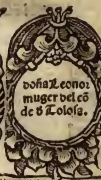 doña Leonor
muger del cõ
de d̕ Tolosa.